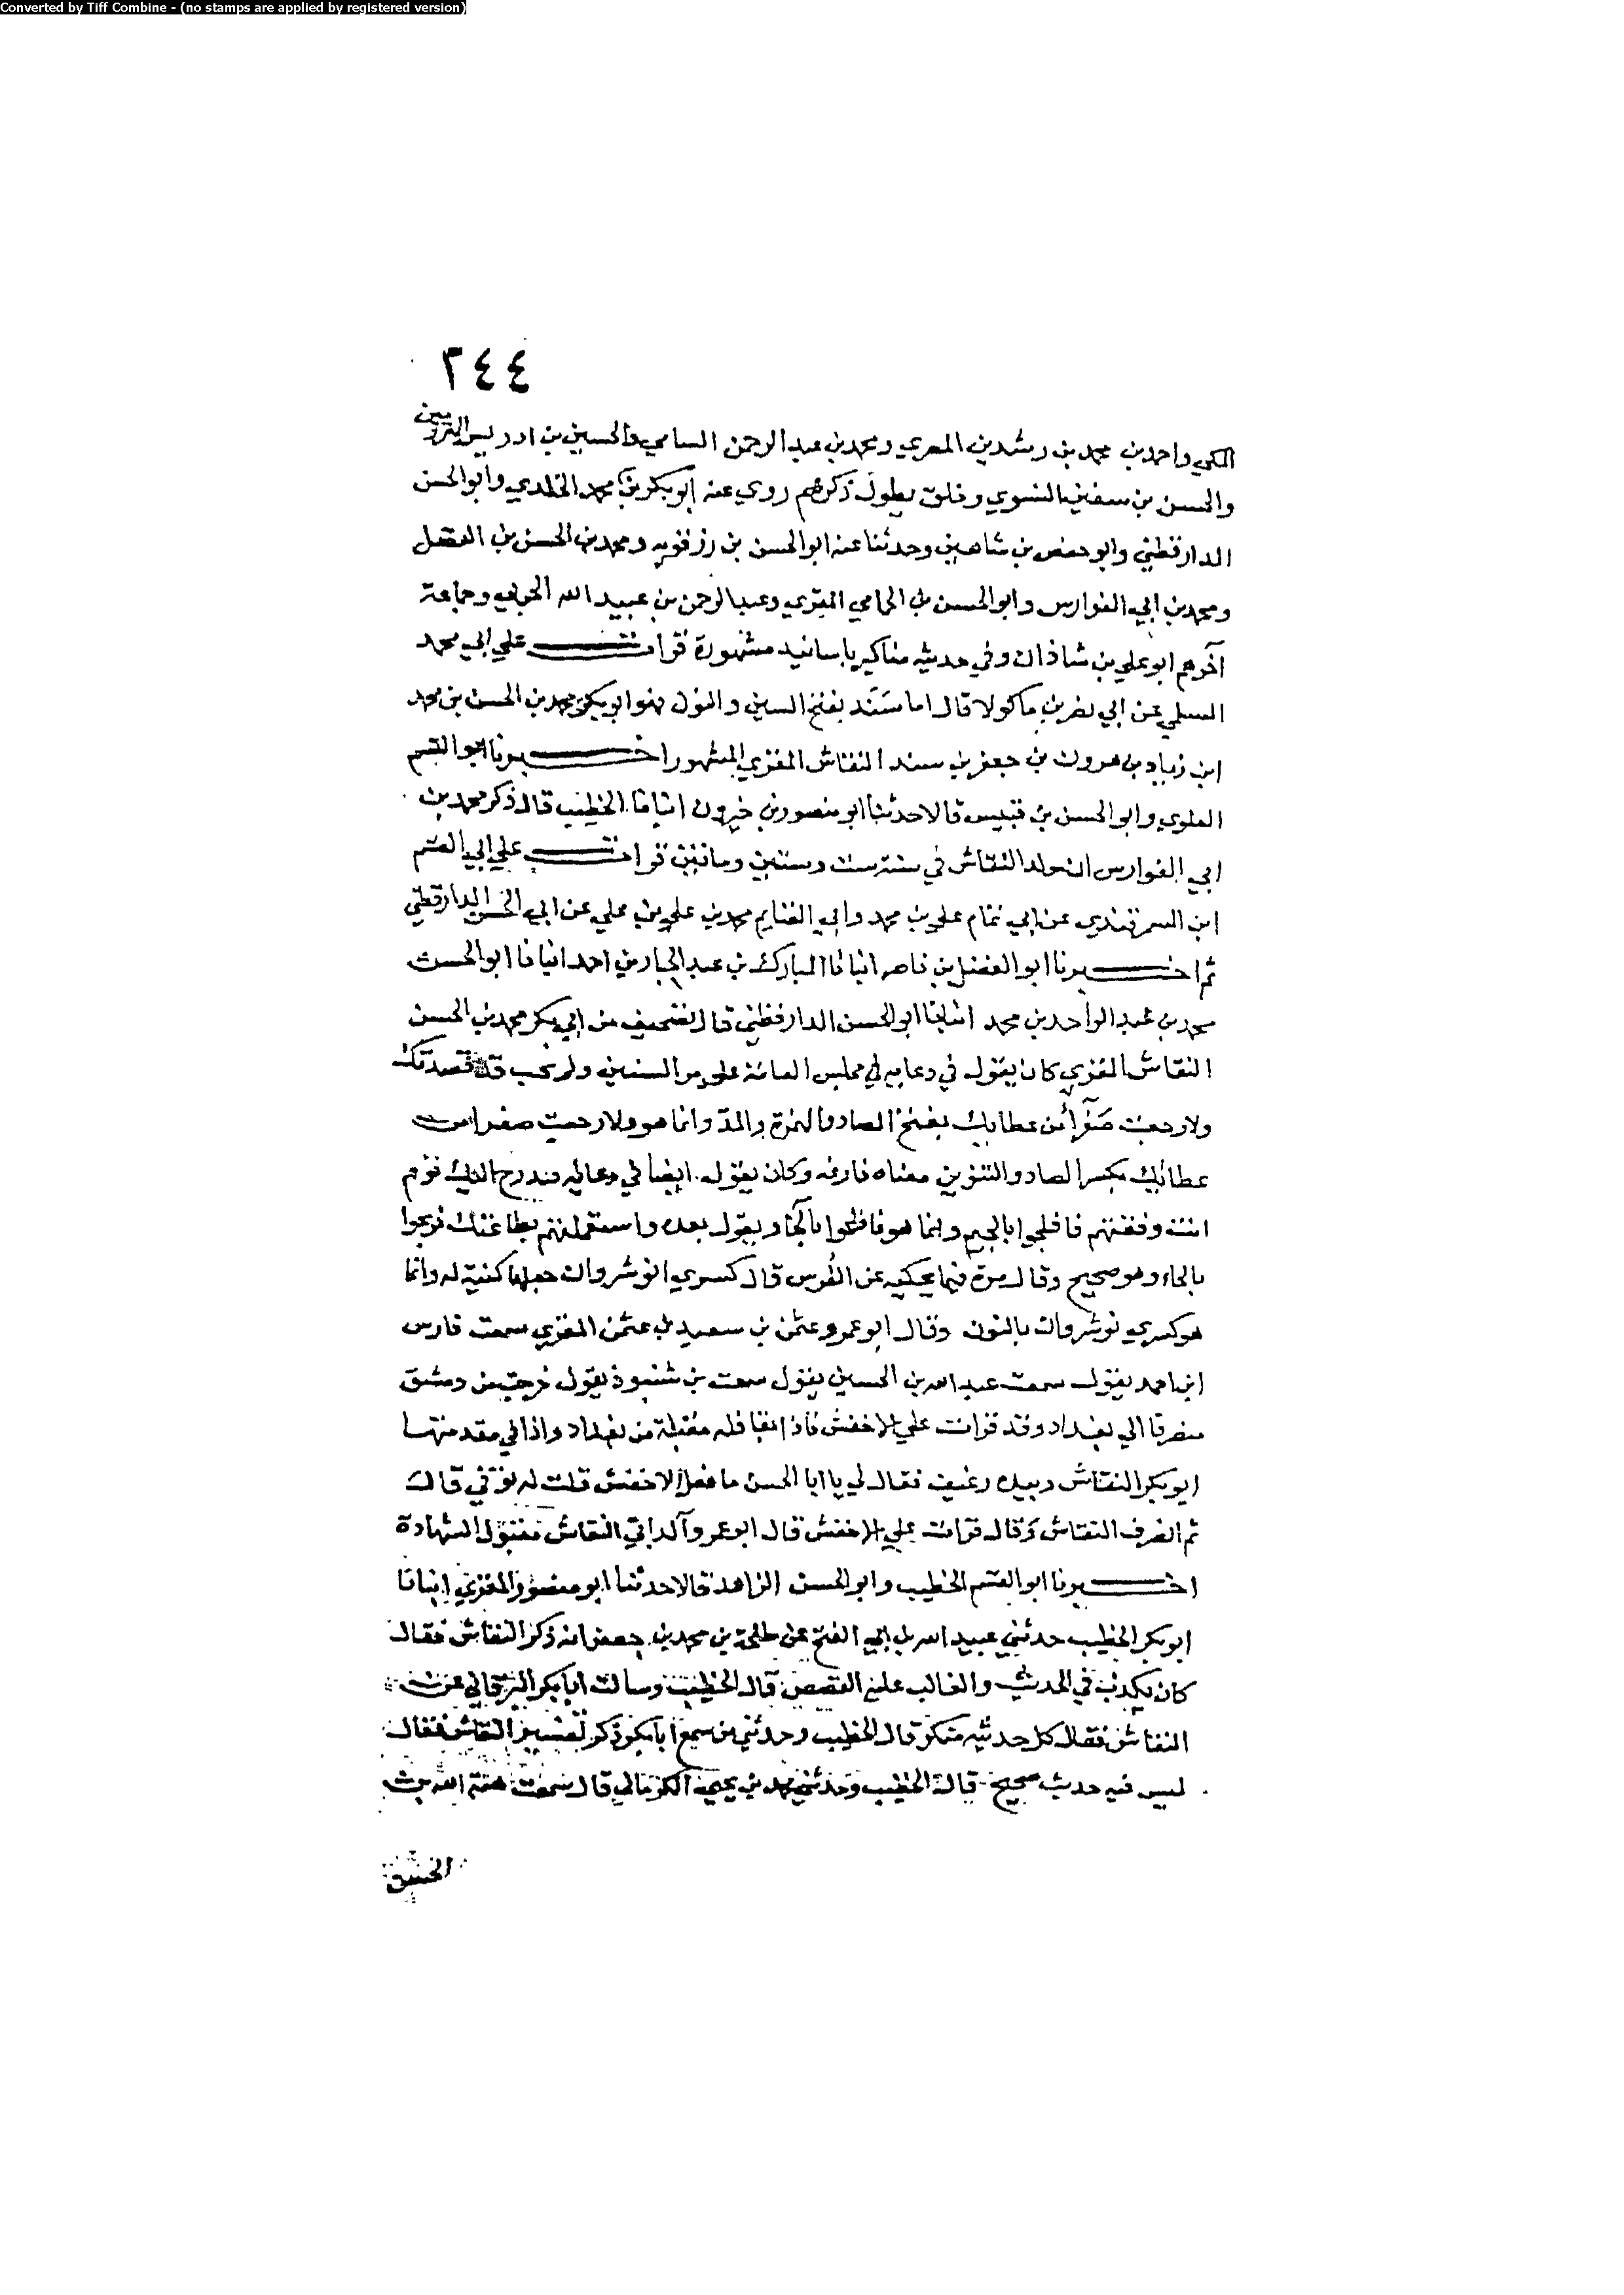 Converted by Tiff Combine - (no stamps are applied by registered version)
٢٤٤
المكي واحمد بن محمد بن رشدين المصري ومحمد بن عبد الرحمن السامي والحسين بن ادريس الهرويين
والحسن بن سفين النسوي وخلق يطول ذكرهم روي عنه ابو بكر بن محمد الخلدي وابو الحسن
الدارقطني وابو حفص بن شاهين وحدثنا عنه ابو الحسن بن رزقويه ومحمد بن الحسن بن الفضل
ومحمد بن ابي الفوارس وابو الحسن بن الحمامي المقري وعبد الرحمن بن عبيد الله الحرفي وجماعة
آخرهم ابو علي بن شاذان وفي حديثه مناكير باسانيد مشهورة قرات علي ابي محمد
السلمي عن ابي نصر بن ماكولا قال اما سَنَد بفتح السين والنون فهو ابو بكر محمد بن الحسن بن محمد
ابن زياد بن هرون بن جعفر بن سند النقاش المقري المشهور اخبرنا ابو القسم
العلوي وابو الحسن بن قبيس قالا حدثنا ابو منصور بن خيرون انبانا الخطيب قال ذكر محمد بن
ابي الفوارس ان مولد النقاش في سنة ست وستين ومائتين قرات علي ابي القسم
ابن السمرقندي عن ابي تمام علي بن محمد وابي الغنايم محمد بن علي بن علي عن ابي الحسن الدارقطني
ثم اخبرنا ابو الفضل بن ناصر انبانا المبارك بن عبد الجبار بن احمد انبانا ابو الحسن
محمد بن عبد الواحد بن محمد انبانا ابو الحسن الدارقطني قال تصحيف من ابي بكر محمد بن الحسن
النقاش المقري كان يقول في دعايه في مجلس العامة علي مر السنين ولم نحب قد قصدتك
ولا رجعت صَفْرًا من عطايك بفتح الصاد والهمزة والمد وانما هو ولا رجعت صفرا من
عطائك بكسر الصاد والتنوين معناه فارغه وكان يقول ايضا في دعائه مدرج اليك قوم
انت وفقتهم فافلجوا بالجيم وانما هو فافلحوا بالحا ويقول بعده واستعملتهم بطاعتك فربحوا
بالحاء وهو صحيح وقال مرة فيما يحكيه عن الفُرس قال كسري ابو شروان جعلها كنية له وانما
هو كسري نوشروان بالنون وقال ابو عمرو عثمن بن سعيد بن عثمن المقري سمعت فارس
ابن احمد يقول سمعت عبد الله بن الحسين يقول سمعت بن شنبوذ يقول خرجت من دمشق
منصرفا الي بغداد وقد قرات علي الاخفش فاذا بقافله مقبلة من بغداد واذا في مقدمتها
ابو بكر النقاش وبيده رغيف فقال لي يا ابا الحسن ما فعل الاخفش قلت له توفي قال
ثم انصرف النقاش وقال قرات علي الاخفش قال ابو عمرو الداني النقاش مقبول الشهادة
اخبرنا ابو القسم الخطيب وابو الحسن الزاهد قالا حدثنا ابو منصور المقري انبانا
ابو بكر الخطيب حدثني عبيد الله بن ابي الفتح عن طلحة بن محمد بن جعفر انه ذكر النقاش فقال
كان يكذب في الحديث والغالب عليه القصص قال الخطيب وسالت ابا بكر البرقاني عن
النقاش فقال كل حديثه منكر قال الخطيب وحدثني من سمع ابا بكر ذكر تفسير النقاش فقال
ليس فيه حديث صحيح قال الخطيب وحدثني محمد بن يحيي الكرماني قال سمعت هبة الله بن
الحسن